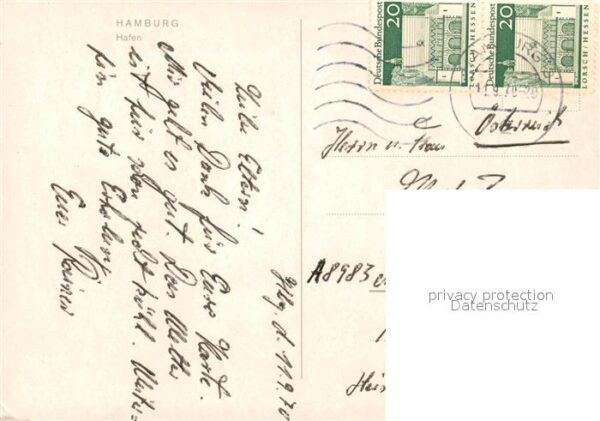 HAMBURG
Hafen
Hbg. d. 11.9.70
Liebe Eltern!
Vielen Dank für Eure Karte.
Mir geht es gut. Das Wetter
ist für schon recht kühl. Weiter=
hin gute Erholung
Euer Rainer
20
Deutsche Bundespost
LORSCH/HESSEN
20
Deutsche Bundespost
LORSCH/HESSEN
11.9.70-20
Österreich
Herrn u. Frau
A8983
privacy protection
Datenschutz